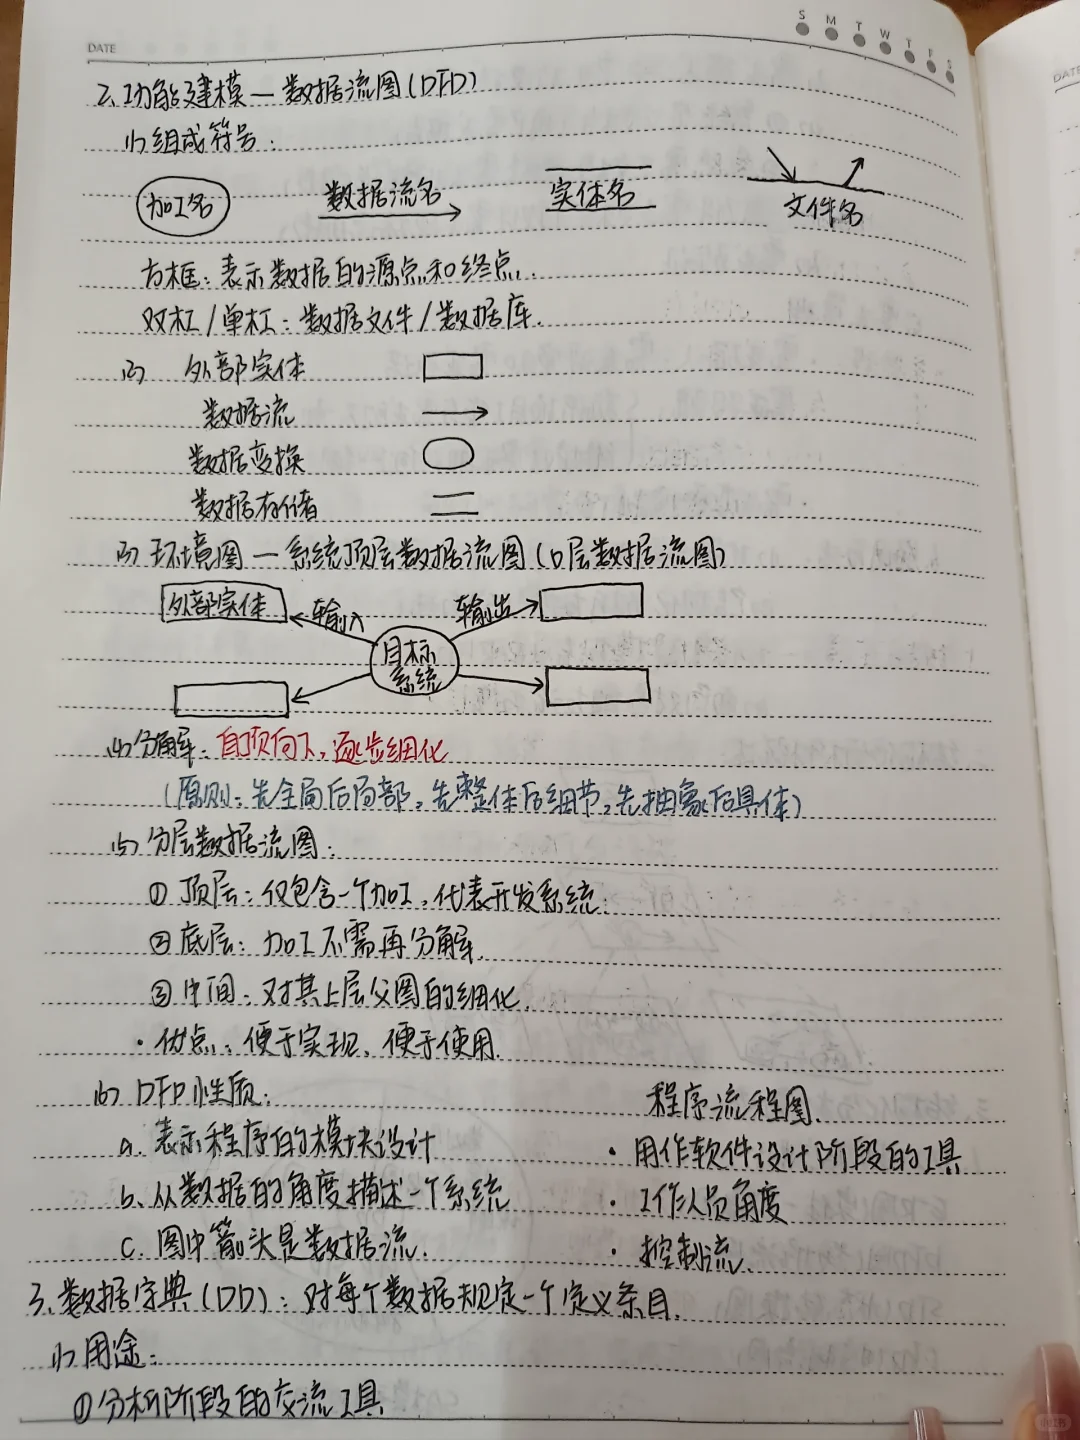 S M T W T F S
DATE
2、功能建模—数据流图(DFD)
(1) 组成符号:
加工名 数据流名 实体名 文件名
方框:表示数据的源点和终点.
双杠/单杠:数据文件/数据库.
(2) 外部实体
数据流
数据变换
数据存储
(3) 环境图—系统顶层数据流图(0层数据流图)
外部实体 输入 输出
目标系统
(4) 分解:自顶向下,逐步细化
(原则:先全局后局部,先整体后细节,先抽象后具体)
(5) 分层数据流图:
① 顶层:仅包含一个加工,代表开发系统.
② 底层:加工不需再分解.
③ 中间:对其上层父图的细化.
·优点:便于实现、便于使用.
(6) DFD性质: 程序流程图.
a. 表示程序的模块设计 ·用作软件设计阶段的工具
b、从数据的角度描述一个系统 ·工作人员角度
c. 图中箭头是数据流. ·控制流.
3、数据字典(DD):对每个数据规定一个定义条目.
(1) 用途:
① 分析阶段的交流工具
DATE
小红书